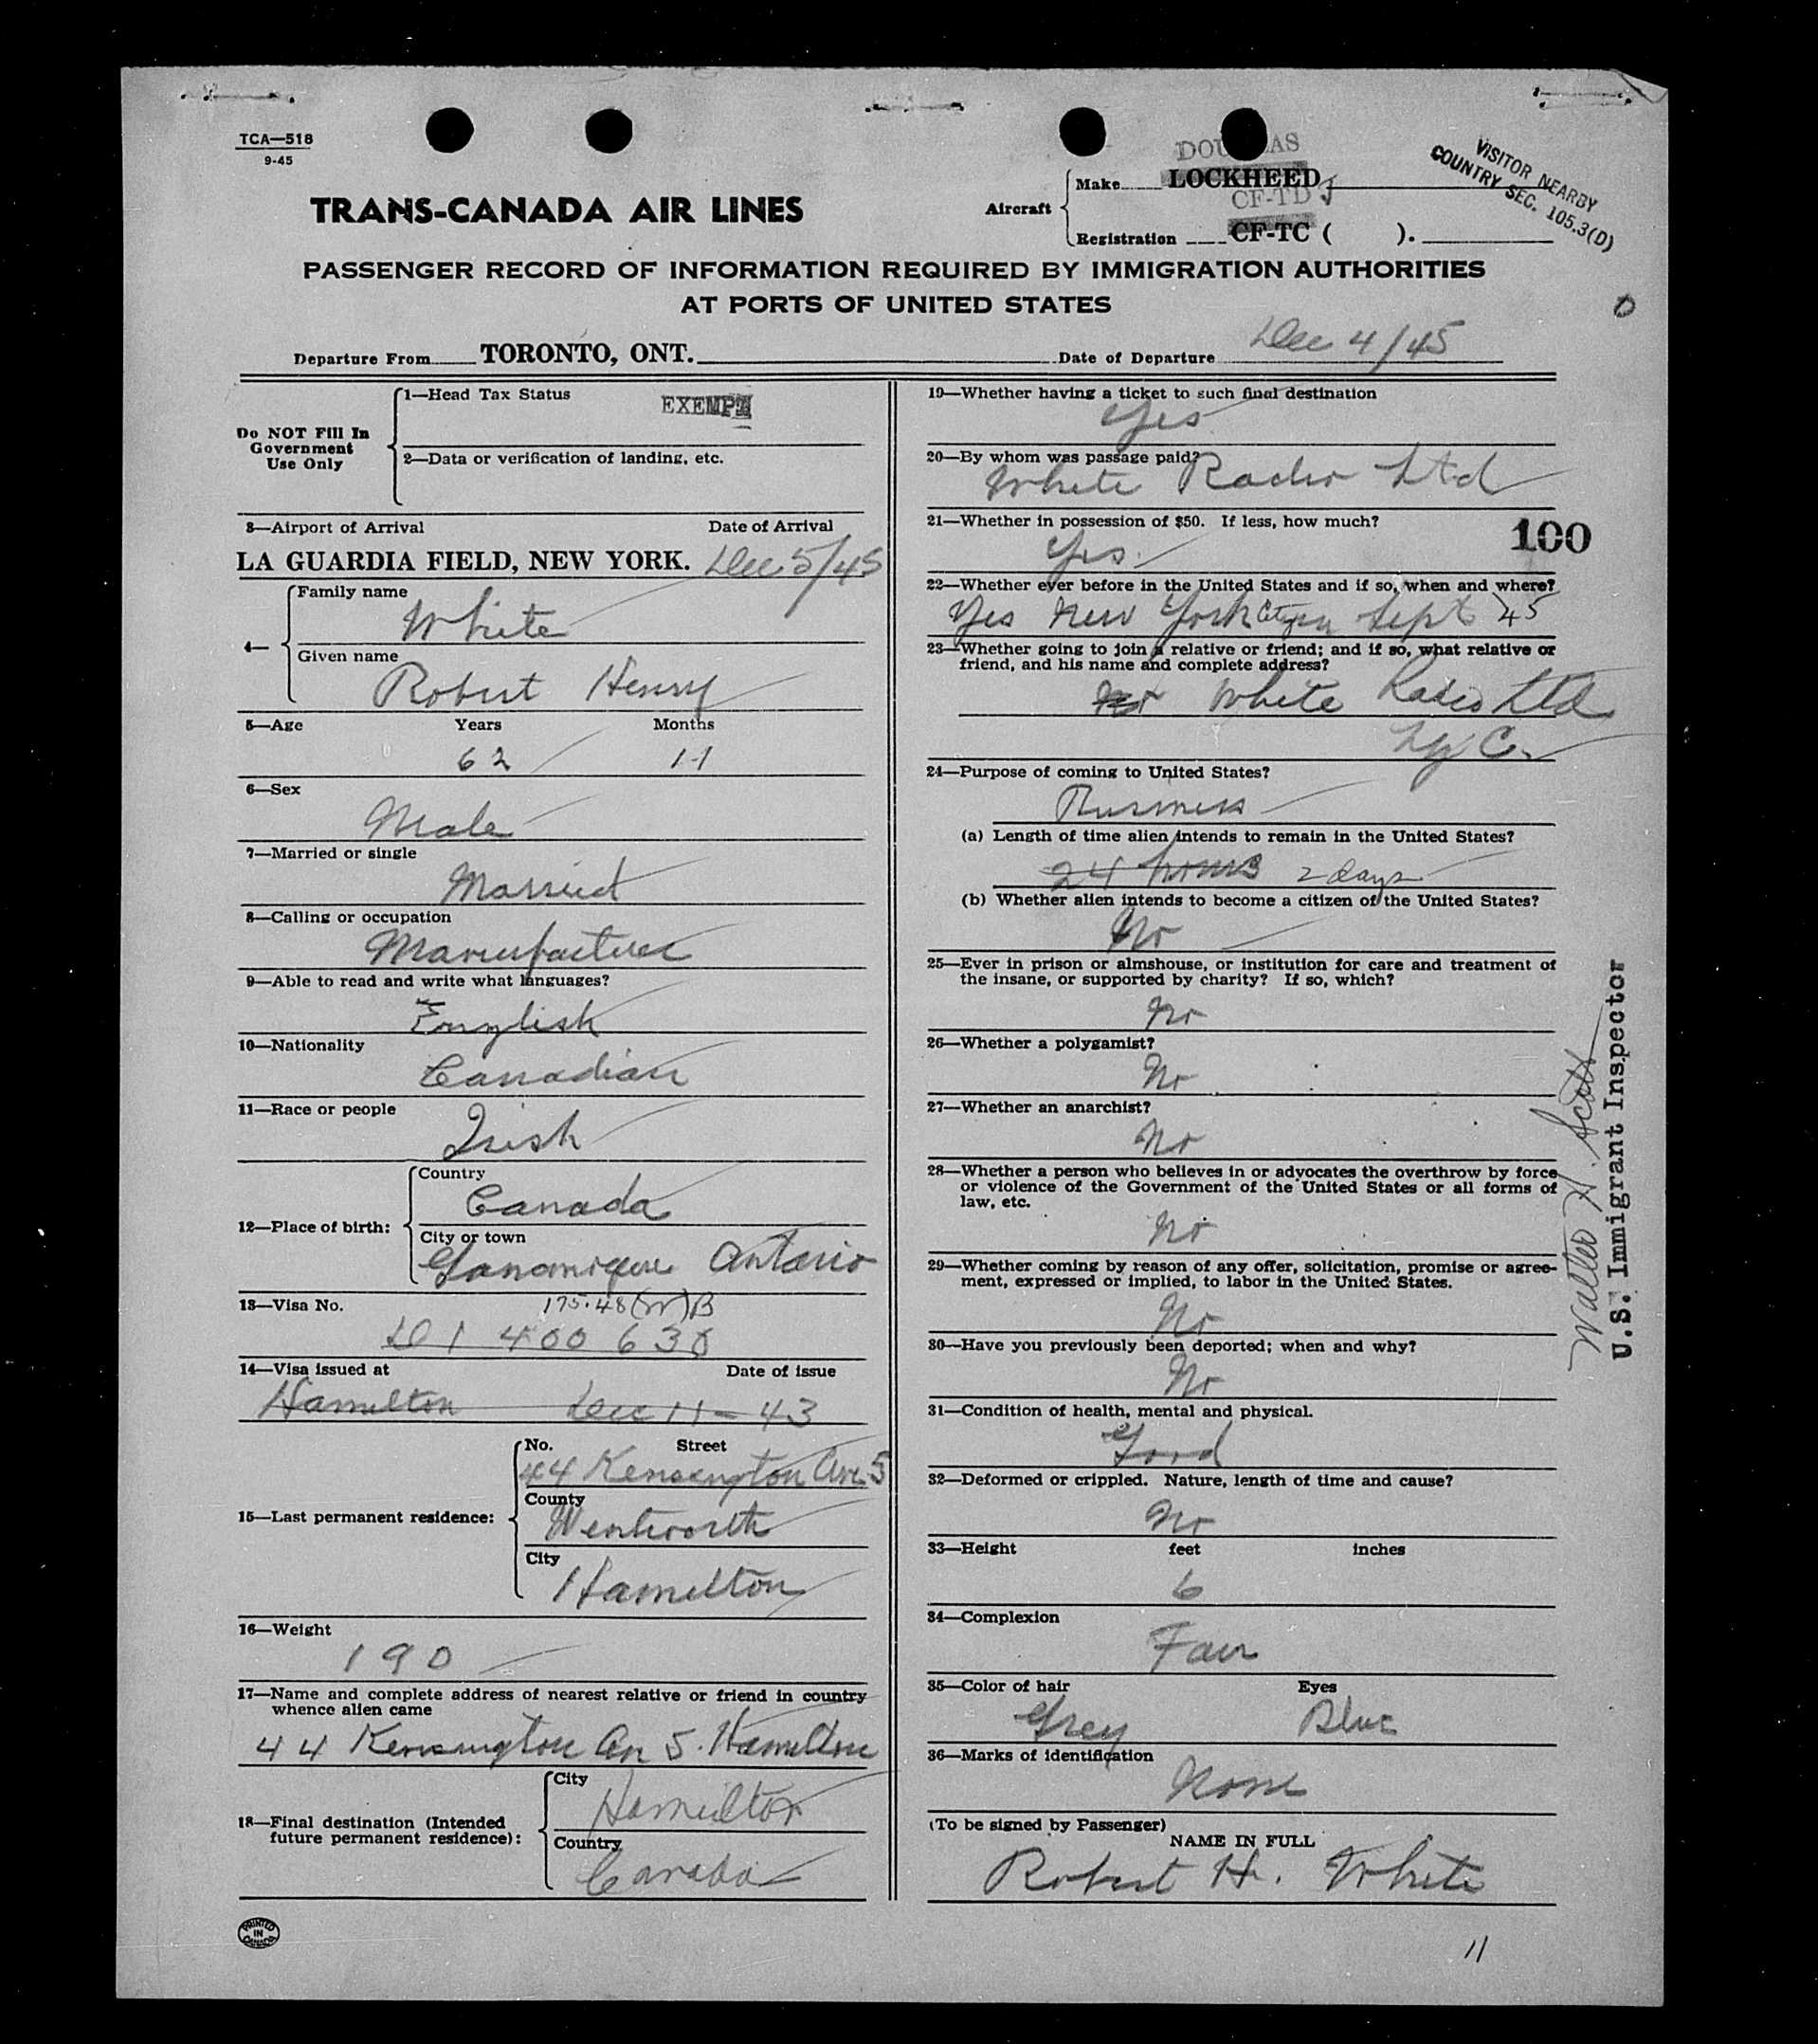 TCA—518
9-45
TRANS-CANADA AIR LINES
Aircraft
Make LOCKHEED
DOUGLAS
CF-TDJ
Registration CF-TC ( ).
VISITOR NEARBY
COUNTRY SEC. 105.3(D)
PASSENGER RECORD OF INFORMATION REQUIRED BY IMMIGRATION AUTHORITIES
AT PORTS OF UNITED STATES
Departure From TORONTO, ONT. Date of Departure Dec 4/45
Do NOT Fill In
Government
Use Only
1—Head Tax Status EXEMPT
2—Data or verification of landing, etc.
3—Airport of Arrival Date of Arrival
LA GUARDIA FIELD, NEW YORK. Dec 5/45
4—
Family name
White
Given name
Robert Henry
5—Age Years Months
62 11
6—Sex
Male
7—Married or single
Married
8—Calling or occupation
Manufacturer
9—Able to read and write what languages?
English
10—Nationality
Canadian
11—Race or people
Irish
12—Place of birth:
Country
Canada
City or town
Gananoque Ontario
13—Visa No. 175.48(W)B
D1 400 630
14—Visa issued at Date of issue
Hamilton Dec 11 - 43
15—Last permanent residence:
No. Street
44 Kensington Ave S
County
Wentworth
City
Hamilton
16—Weight
190
17—Name and complete address of nearest relative or friend in country
whence alien came
44 Kensington Av S. Hamilton
18—Final destination (Intended
future permanent residence):
City
Hamilton
Country
Canada
PRINTED
IN
CANADA
19—Whether having a ticket to such final destination
Yes
20—By whom was passage paid?
White Radio Ltd
21—Whether in possession of $50. If less, how much?
Yes.
100
22—Whether ever before in the United States and if so, when and where?
Yes New York City Sept 45
23—Whether going to join a relative or friend; and if so, what relative or
friend, and his name and complete address?
No White Radio Ltd
NYC.
24—Purpose of coming to United States?
Business
(a) Length of time alien intends to remain in the United States?
24 hours 2 days
(b) Whether alien intends to become a citizen of the United States?
No
25—Ever in prison or almshouse, or institution for care and treatment of
the insane, or supported by charity? If so, which?
No
26—Whether a polygamist?
No
27—Whether an anarchist?
No
28—Whether a person who believes in or advocates the overthrow by force
or violence of the Government of the United States or all forms of
law, etc.
No
29—Whether coming by reason of any offer, solicitation, promise or agree-
ment, expressed or implied, to labor in the United States.
No
30—Have you previously been deported; when and why?
No
31—Condition of health, mental and physical.
Good
32—Deformed or crippled. Nature, length of time and cause?
No
33—Height feet inches
6
34—Complexion
Fair
35—Color of hair Eyes
Grey Blue
36—Marks of identification
None
(To be signed by Passenger)
NAME IN FULL
Robert H. White
11
Walter H. Scott
U.S. Immigrant Inspector